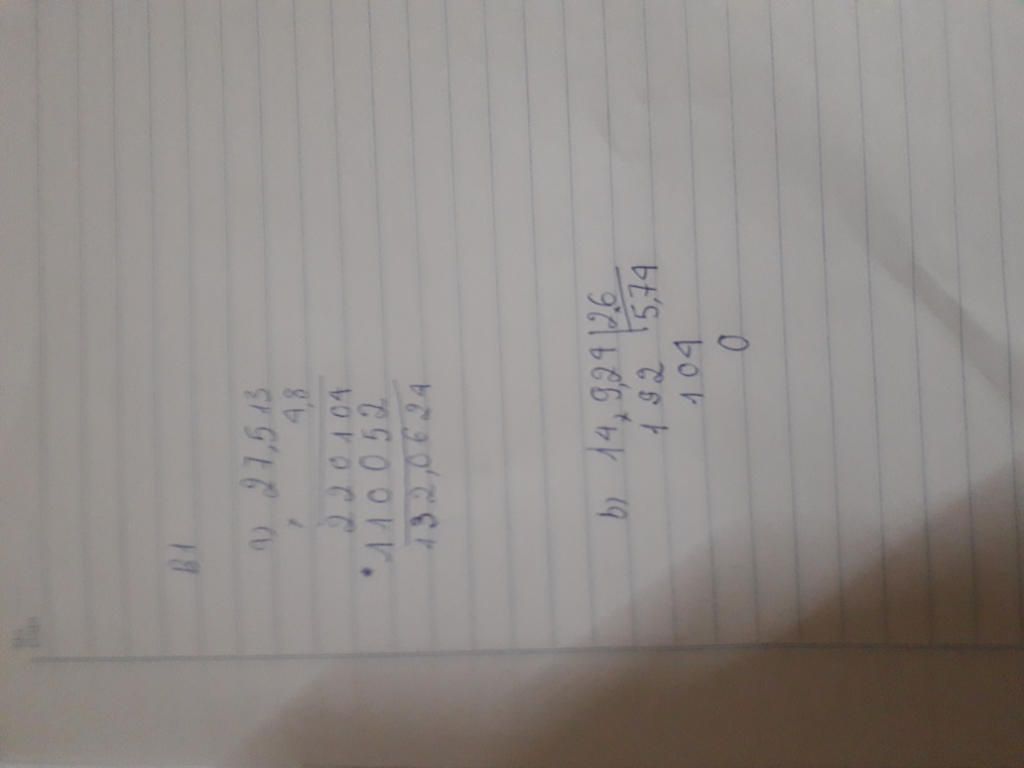 B1
a) 27,513
, 4,8
220104
110052
132,0624
b) 14,924 | 2,6
192 5,74
104
0